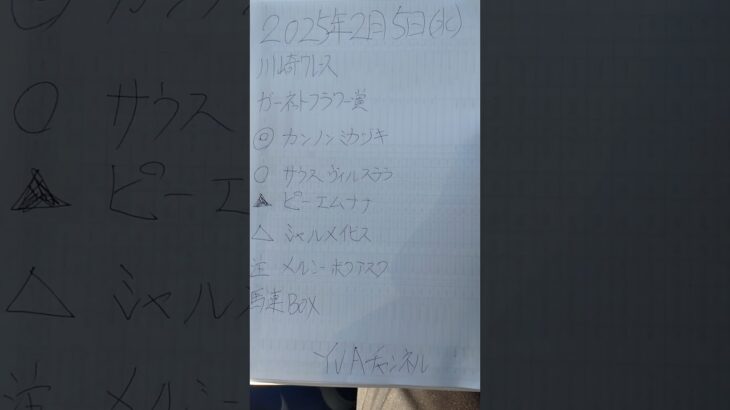 2025年2月5日(水)
川崎7レース
ガーネットフラワー賞
◎ カンノンミカヅキ
○ サウスヴィルステラ
▲ ピーエムナナ
△ シャルメイビス
注 メルシーホクアスク
馬連BOX
YVAチャンネル